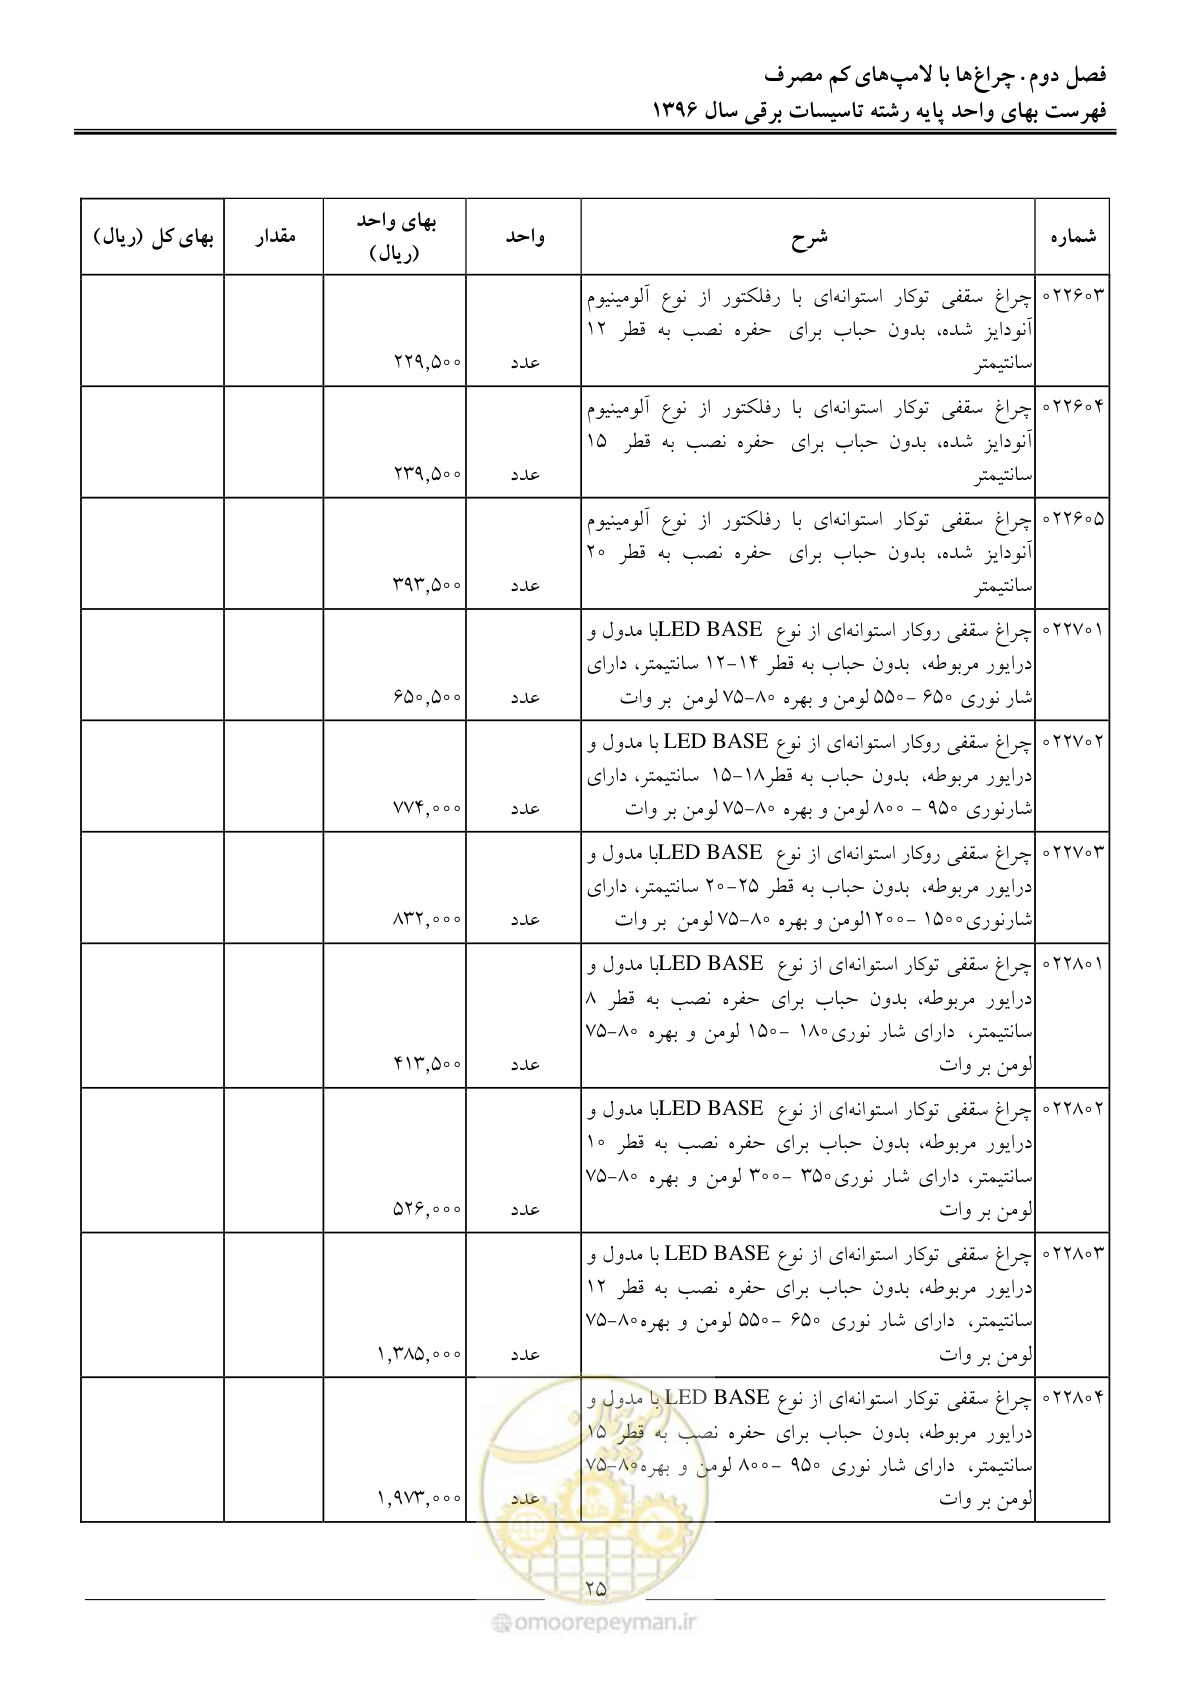 فصل دوم. چراغ‌ها با لامپ‌های کم مصرف
فهرست بهای واحد پایه رشته تاسیسات برقی سال ۱۳۹۶
شماره شرح واحد بهای واحد (ریال) مقدار بهای کل (ریال)
۰۲۲۶۰۳ چراغ سقفی توکار استوانه‌ای با رفلکتور از نوع آلومینیوم
آنودایز شده، بدون حباب برای حفره نصب به قطر ۱۲
سانتیمتر عدد ۲۲۹,۵۰۰
۰۲۲۶۰۴ چراغ سقفی توکار استوانه‌ای با رفلکتور از نوع آلومینیوم
آنودایز شده، بدون حباب برای حفره نصب به قطر ۱۵
سانتیمتر عدد ۲۳۹,۵۰۰
۰۲۲۶۰۵ چراغ سقفی توکار استوانه‌ای با رفلکتور از نوع آلومینیوم
آنودایز شده، بدون حباب برای حفره نصب به قطر ۲۰
سانتیمتر عدد ۳۹۳,۵۰۰
۰۲۲۷۰۱ چراغ سقفی روکار استوانه‌ای از نوع LED BASEبا مدول و
درایور مربوطه، بدون حباب به قطر ۱۴-۱۲ سانتیمتر، دارای
شار نوری ۶۵۰ -۵۵۰ لومن و بهره ۸۰-۷۵ لومن بر وات عدد ۶۵۰,۵۰۰
۰۲۲۷۰۲ چراغ سقفی روکار استوانه‌ای از نوع LED BASE با مدول و
درایور مربوطه، بدون حباب به قطر۱۸-۱۵ سانتیمتر، دارای
شارنوری ۹۵۰ - ۸۰۰ لومن و بهره ۸۰-۷۵ لومن بر وات عدد ۷۷۴,۰۰۰
۰۲۲۷۰۳ چراغ سقفی روکار استوانه‌ای از نوع LED BASEبا مدول و
درایور مربوطه، بدون حباب به قطر ۲۵-۲۰ سانتیمتر، دارای
شارنوری۱۵۰۰ -۱۲۰۰لومن و بهره ۸۰-۷۵ لومن بر وات عدد ۸۳۲,۰۰۰
۰۲۲۸۰۱ چراغ سقفی توکار استوانه‌ای از نوع LED BASEبا مدول و
درایور مربوطه، بدون حباب برای حفره نصب به قطر ۸
سانتیمتر، دارای شار نوری۱۸۰ -۱۵۰ لومن و بهره ۸۰-۷۵
لومن بر وات عدد ۴۱۳,۵۰۰
۰۲۲۸۰۲ چراغ سقفی توکار استوانه‌ای از نوع LED BASEبا مدول و
درایور مربوطه، بدون حباب برای حفره نصب به قطر ۱۰
سانتیمتر، دارای شار نوری۳۵۰ -۳۰۰ لومن و بهره ۸۰-۷۵
لومن بر وات عدد ۵۲۶,۰۰۰
۰۲۲۸۰۳ چراغ سقفی توکار استوانه‌ای از نوع LED BASE با مدول و
درایور مربوطه، بدون حباب برای حفره نصب به قطر ۱۲
سانتیمتر، دارای شار نوری ۶۵۰ -۵۵۰ لومن و بهره۸۰-۷۵
لومن بر وات عدد ۱,۳۸۵,۰۰۰
۰۲۲۸۰۴ چراغ سقفی توکار استوانه‌ای از نوع LED BASE با مدول و
درایور مربوطه، بدون حباب برای حفره نصب به قطر ۱۵
سانتیمتر، دارای شار نوری ۹۵۰ -۸۰۰ لومن و بهره۸۰-۷۵
لومن بر وات عدد ۱,۹۷۳,۰۰۰
امور پیمان
۲۵
omoorepeyman.ir